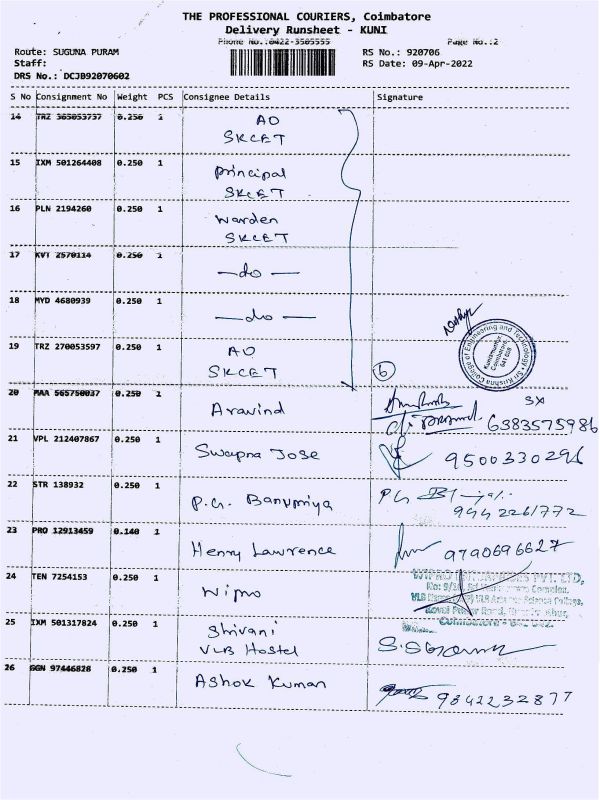 THE PROFESSIONAL COURIERS, Coimbatore
Delivery Runsheet - KUNI
Phone No.:0422-3505555 Page No.:2
Route: SUGUNA PURAM RS No.: 920706
Staff: RS Date: 09-Apr-2022
DRS No.: DCJB92070602
S No Consignment No Weight PCS Consignee Details Signature
14 TRZ 365053737 0.250 1 AO
SKCET
15 IXM 501264408 0.250 1 principal
SKCET
16 PLN 2194260 0.250 1 Warden
SKCET
17 KVT 2570114 0.250 1 —do—
18 MYD 4680939 0.250 1 —do—
19 TRZ 270053597 0.250 1 AO
SKCET 6
Sri Krishna College of Engineering and Technology
Kuniamuthur,
Coimbatore-
641 008
20 MAA 565750037 0.250 1 Aravind
6383575986
21 VPL 212407867 0.250 1 Swapna Jose 9500330296
22 STR 138932 0.250 1 P.G. Banupriya
9442261772
23 PRO 12913459 0.140 1 Henry Lawrence 9790696627
24 TEN 7254153 0.250 1 Wipro
WIPRO PVT. LTD,
25 IXM 501317824 0.250 1 Shivani
VLB Hostel
26 GGN 97446828 0.250 1 Ashok Kumar 9842232877